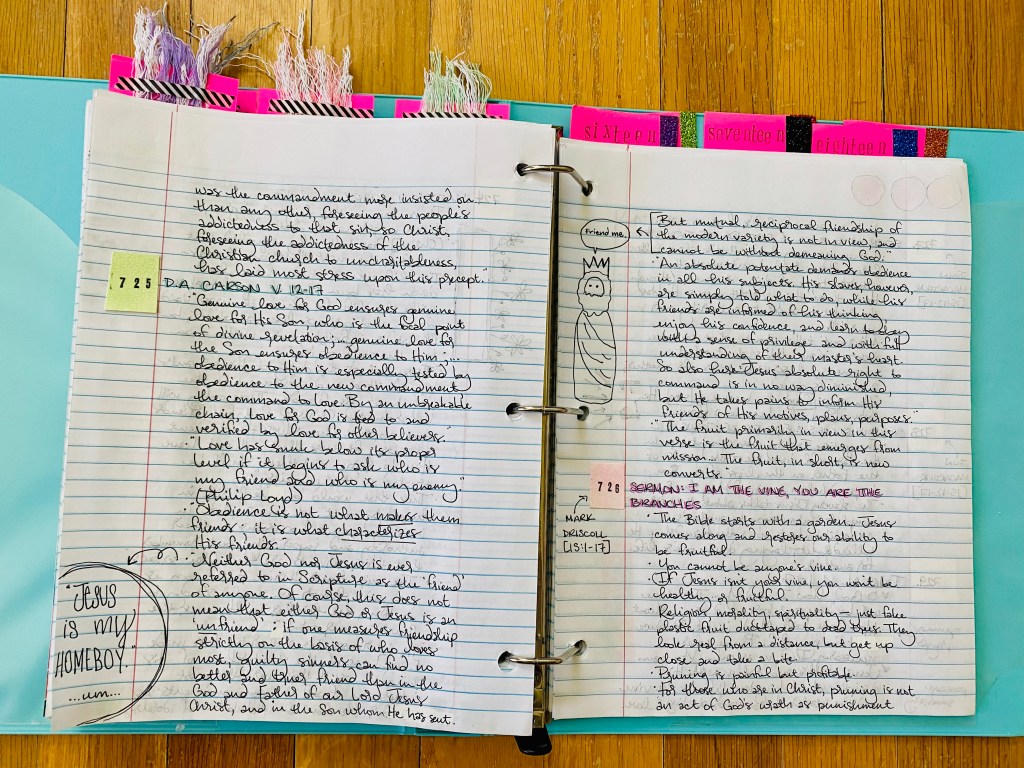 sixteen
seventeen
eighteen
was the commandment more insisted on
than any other, foreseeing the people's
addictedness to that sin, so Christ,
foreseeing the addictedness of the
Christian church to uncharitableness,
has laid most stress upon this precept."
725 D.A. CARSON V. 12-17
"Genuine love for God ensures genuine
love for His Son, who is the focal point
of divine revelation;... genuine love for
the Son ensures obedience to Him;...
obedience to Him is especially tested by
obedience to the new commandment,
the command to love. By an unbreakable
chain, love for God is tied to and
verified by love for other believers."
"Love has sunk below its proper
level if it begins to ask who is
my friend and who is my enemy."
(Philip Loyd)
"Obedience is not what makes them
friends; it is what characterizes
His friends."
"Neither God nor Jesus is ever
referred to in Scripture as the 'friend'
of anyone. Of course, this does not
mean that either God or Jesus is an
'unfriend'; if one measures friendship
strictly on the basis of who loves
most, guilty sinners can find no
better and truer friend than in the
God and Father of our Lord Jesus
Christ, and in the Son whom He has sent.
"JESUS
is my
HOMEBOY."
...um...
Friend me.
But mutual, reciprocal friendship of
the modern variety is not in view, and
cannot be without demeaning God."
"An absolute potentate demands obedience
in all his subjects. His slaves, however,
are simply told what to do, while his
friends are informed of his thinking,
enjoy his confidence, and learn to obey
with a sense of privilege and with full
understanding of their master's heart.
So also here: Jesus' absolute right to
command is in no way diminished,
but He takes pains to inform His
friends of His motives, plans, purposes."
"The fruit primarily in view in this
verse is the fruit that emerges from
mission... The fruit, in short, is new
converts."
726 SERMON: I AM THE VINE, YOU ARE THE
BRANCHES
MARK
DRISCOLL
[15:1-17]
· The Bible starts with a garden... Jesus
comes along and restores our ability to
be fruitful.
· You cannot be anyone's vine.
· If Jesus isn't your vine, you won't be
healthy or fruitful.
· Religion, morality, spirituality — just fake
plastic fruit duct taped to dead trees. They
look real from a distance, but get up
close and take a bite.
· Pruning is painful but profitable.
· For those who are in Christ, pruning is not
an act of God's wrath as punishment